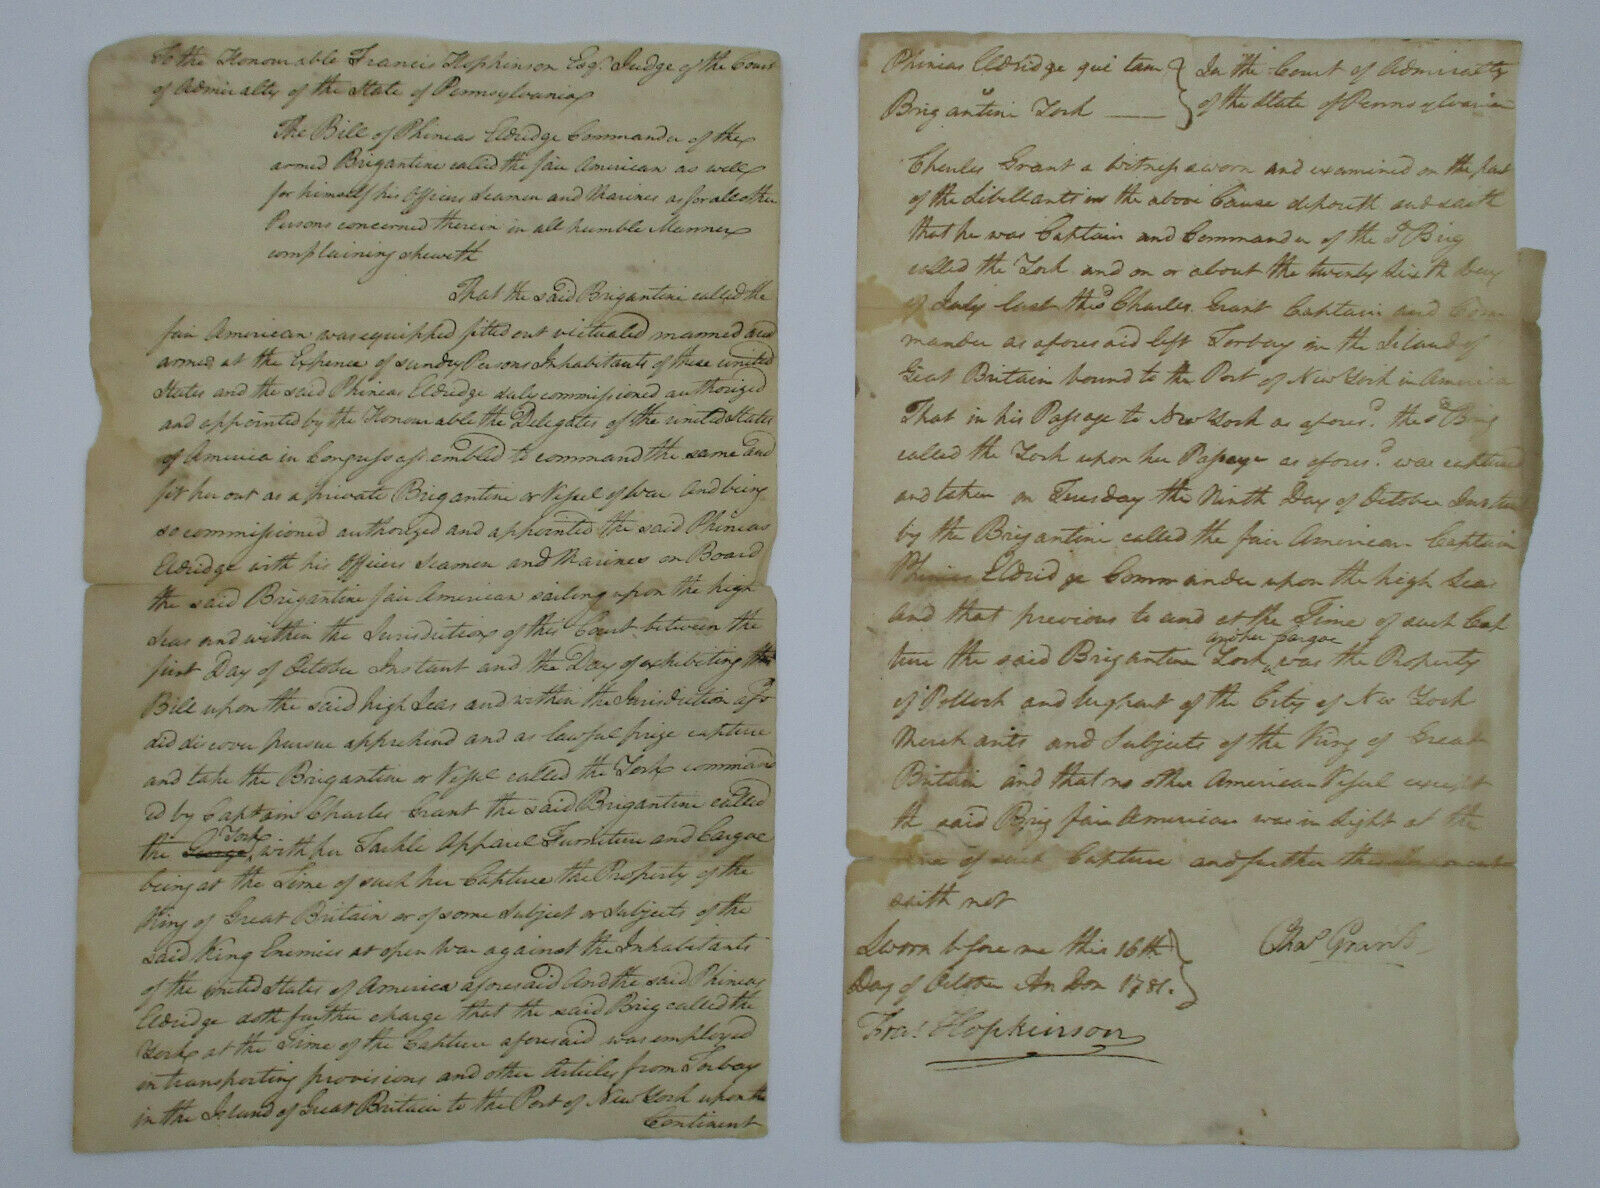 To the Honourable Francis Hopkinson Esqr Judge of the Court
of Admiralty of the State of Pennsylvania
The Bill of Phineas Eldridge Commander of the
armed Brigantine called the fair American as well
for himself his Officers Seamen and Marines as for all other
Persons concerned therein in all humble Manner
complaining sheweth
That the said Brigantine called the
fair American was equipped fitted out victualed manned and
armed at the Expence of sundry Persons Inhabitants of these united
States and the said Phineas Eldridge duly commissioned authorized
and appointed by the Honourable the Delegates of the united States
of America in Congress assembled to command the same and
fit her out as a private Brigantine or Vessel of War And being
so commissioned authorized and appointed the said Phineas
Eldridge with his Officers Seamen and Marines on Board
the said Brigantine fair American sailing upon the high
Seas and within the Jurisdiction of this Court between the
first Day of October Instant and the Day of exhibiting this
Bill upon the said high Seas and within the Jurisdiction afsd
did discover pursue apprehend and as lawful prize capture
and take the Brigantine or Vessel called the York command
ed by Captain Charles Grant the said Brigantine called
York
the with her Tackle Apparel Furniture and Cargoe
being at the Time of such her Capture the Property of the
King of Great Britain or of some Subject or Subjects of the
said King Enemies at open War against the Inhabitants
of the united States of America aforesaid And the said Phineas
Eldridge doth further charge that the said Brig called the
York at the Time of the Capture aforesaid was employed
in transporting provisions and other Articles from Torbay
in the Island of Great Britain to the Port of New York upon the
Continent
Phinias Eldridge qui tam } In the Court of Admiralty
Brigantine York } of the State of Pennsylvania
Charles Grant a Witness sworn and examined on the part
of the Libellants in the above Cause deposeth and saith
that he was Captain and Commander of the sd Brig
called the York and on or about the twenty sixth Day
of July last the sd Charles Grant Captain and Com
mander as aforesaid left Torbay in the Island of
Great Britain bound to the Port of New York in America
That in his Passage to New York as aforesd. the sd Brig
called the York upon her Passage as aforesd. was captured
and taken on Tuesday the Ninth Day of October Instant
by the Brigantine called the fair American Captain
Phinias Eldridge Commander upon the high Seas
and that previous to and at the Time of such Cap
and her Cargoe
ture the said Brigantine York was the Property
of Pollock and of the City of New York
Merchants and Subjects of the King of Great
Britain and that no other American Vessel except
the said Brig fair American was in Sight at the
Time of such Capture and further this Deponent
saith not
Sworn before me this 16th }
Day of October An Dom 1781. }
Chas Grant
Fras. Hopkinson